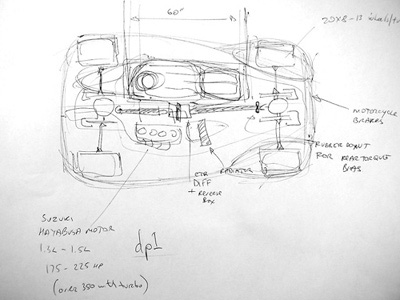 60"
20x8-13 wheels/
MOTORCYCLE
BRAKES
RUBBER DONUT
FOR REAR TORQUE
BIAS
RADIATOR
CTR
DIFF
+ REVERSE
BOX
SUZUKI
HAYABUSA MOTOR
1.3L - 1.5L
175 - 225 HP
(over 350 with turbo)
dp1